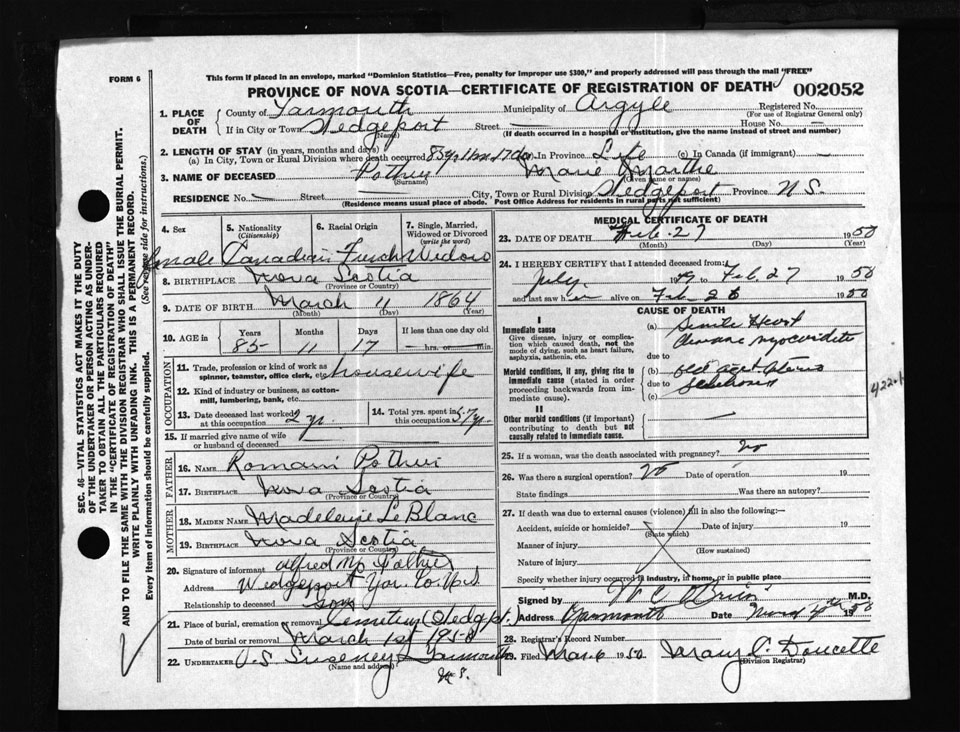 FORM 6
This form if placed in an envelope, marked "Dominion Statistics—Free, penalty for improper use $300," and properly addressed will pass through the mail "FREE"
PROVINCE OF NOVA SCOTIA—CERTIFICATE OF REGISTRATION OF DEATH 002052
1. PLACE OF DEATH County of Yarmouth Municipality of Argyle Registered No.
(For use of Registrar General only)
If in City or Town Wedgeport Street — House No. —
(Name) (If death occurred in a hospital or institution, give the name instead of street and number)
2. LENGTH OF STAY (in years, months and days)
(a) In City, Town or Rural Division where death occurred 85 yr 11 m 17 da In Province Life (c) In Canada (if immigrant) —
3. NAME OF DECEASED Pothier Marie Marthe
(Surname) (Given name or names)
RESIDENCE No. — Street City, Town or Rural Division Wedgeport Province N S.
(Residence means usual place of abode. Post Office Address for residents in rural parts not sufficient)
4. Sex 5. Nationality (Citizenship) 6. Racial Origin 7. Single, Married, Widowed or Divorced (write the word)
Female Canadian French Widow
8. BIRTHPLACE Nova Scotia
(Province or Country)
9. DATE OF BIRTH March 11 1864
(Month) (Day) (Year)
10. AGE in Years Months Days If less than one day old
85 11 17 — hrs. or — min.
OCCUPATION
11. Trade, profession or kind of work as spinner, teamster, office clerk, etc. housewife
12. Kind of industry or business, as cotton-mill, lumbering, bank, etc.
13. Date deceased last worked at this occupation 2 yr. 14. Total yrs. spent in this occupation 57 yr.
15. If married give name of wife or husband of deceased
FATHER
16. NAME Romain Pothier
17. BIRTHPLACE Nova Scotia
(Province or Country)
MOTHER
18. MAIDEN NAME Madeleine LeBlanc
19. BIRTHPLACE Nova Scotia
(Province or Country)
20. Signature of informant Alfred M Pothier
Address Wedgeport Yar. Co. N.S.
Relationship to deceased son
21. Place of burial, cremation or removal Cemetery (Wedgpt.)
Date of burial or removal March 1st 1950
22. UNDERTAKER V.S. Sweeney Yarmouth
(Name and address) N.S.
MEDICAL CERTIFICATE OF DEATH
23. DATE OF DEATH Feb. 27 1950
(Month) (Day) (Year)
24. I HEREBY CERTIFY that I attended deceased from:
July 1949 to Feb. 27 1950
and last saw her alive on Feb 26 1950
CAUSE OF DEATH
I
Immediate cause
Give disease, injury or complication which caused death, not the mode of dying, such as heart failure, asphyxia, asthenia, etc.
(a) Senile Heart
Chronic myocarditis
due to
Morbid conditions, if any, giving rise to immediate cause (stated in order proceeding backwards from immediate cause).
(b) old age
due to
(c)
422.1
II
Other morbid conditions (if important) contributing to death but not causally related to immediate cause.
25. If a woman, was the death associated with pregnancy? no
26. Was there a surgical operation? no Date of operation 19
State findings Was there an autopsy?
27. If death was due to external causes (violence) fill in also the following:—
Accident, suicide or homicide? Date of injury 19
(State which)
Manner of injury
(How sustained)
Nature of injury
Specify whether injury occurred in industry, in home, or in public place
Signed by W C O'Brien M.D.
Address Yarmouth Date 1950
28. Registrar's Record Number
29. Filed Mar. 6 1950 Mary C. Doucette
(Division Registrar)
SEC. 46—VITAL STATISTICS ACT MAKES IT THE DUTY
OF THE UNDERTAKER OR PERSON ACTING AS UNDER-
TAKER TO OBTAIN ALL THE PARTICULARS REQUIRED
IN THE "CERTIFICATE OF REGISTRATION OF DEATH"
AND TO FILE THE SAME WITH THE DIVISION REGISTRAR WHO SHALL ISSUE THE BURIAL PERMIT.
WRITE PLAINLY WITH UNFADING INK. THIS IS A PERMANENT RECORD.
Every item of information should be carefully supplied. (See reverse side for instructions.)